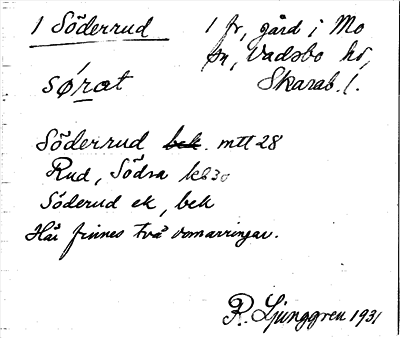 1 Söderrud 1 fr, gård i Mo
sn, Vadsbo hd,
sǿrat Skarab. l.
Söderrud bek. mtt 28
Rud, Södra kb30
Söderud ek, bek
Här finnes två vomarringar.
R. Ljunggren 1931